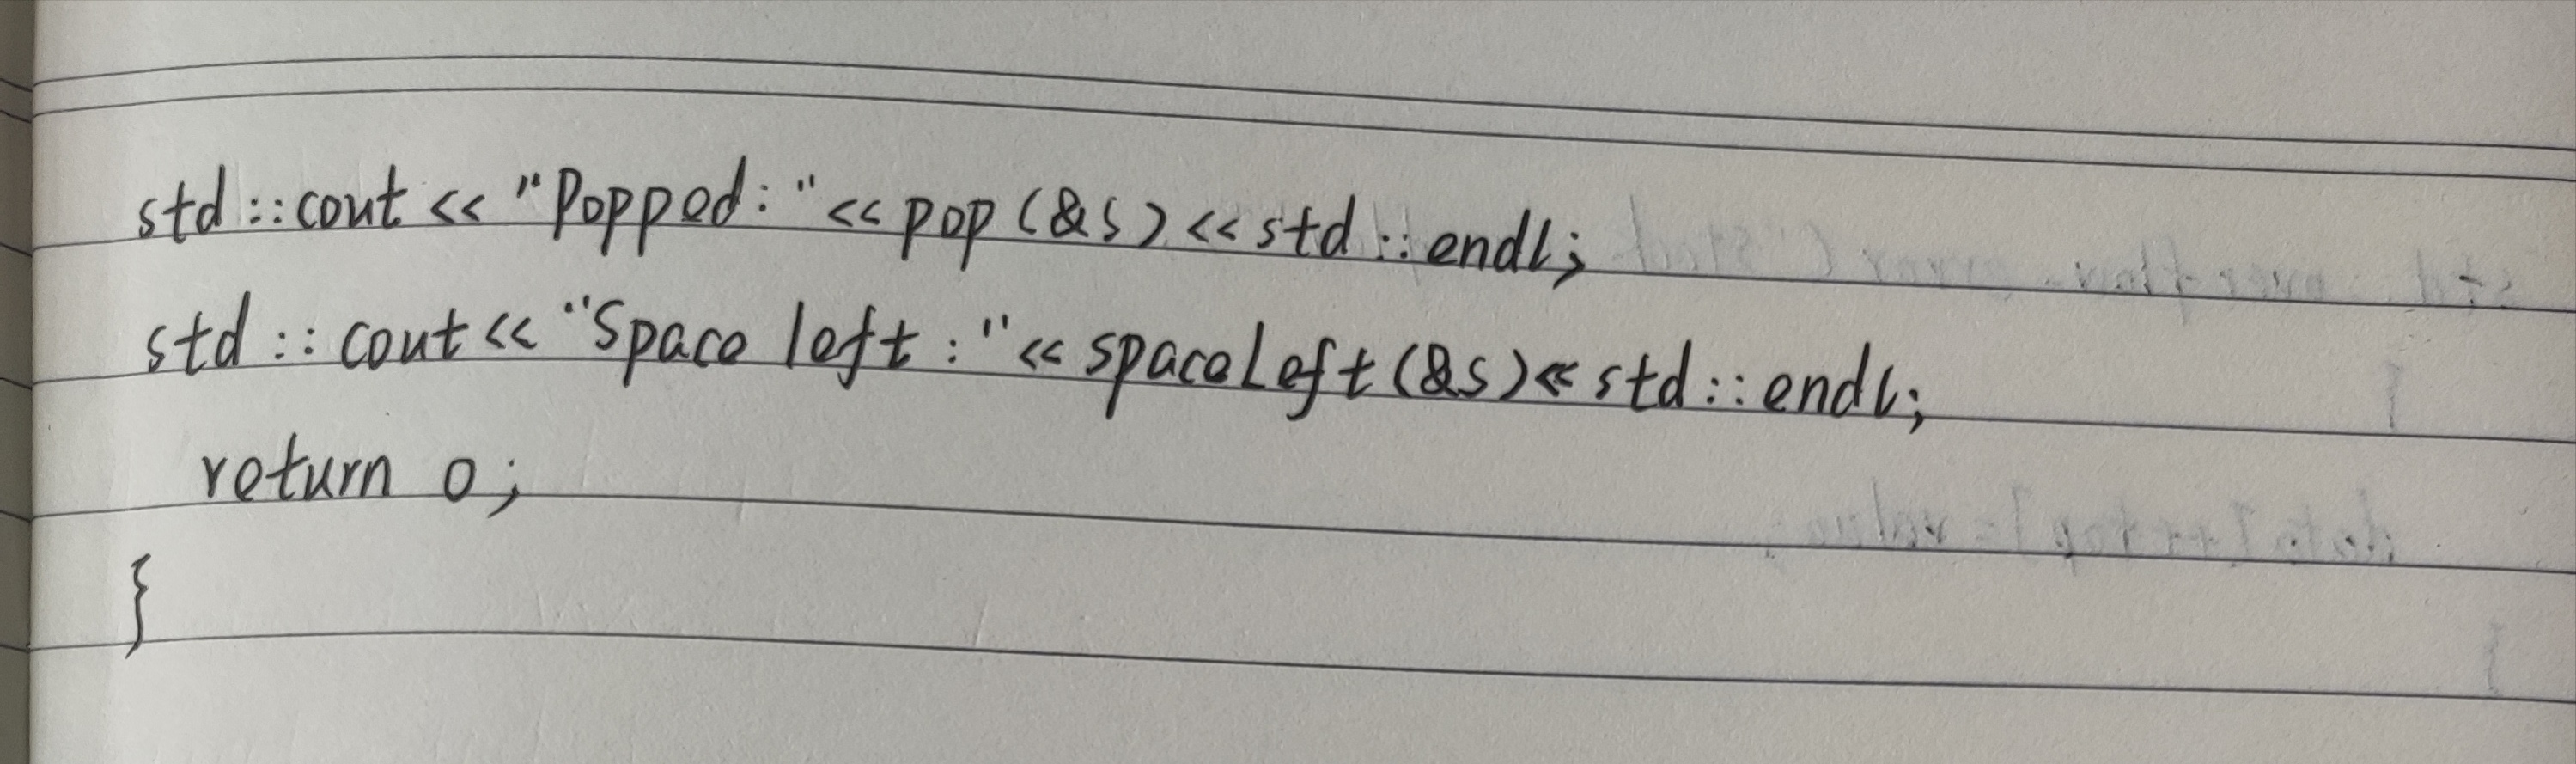 std::cout << "Popped: " << pop(&s) << std::endl;
std::cout << "Space left: " << spaceLeft(&s) << std::endl;
return 0;
}